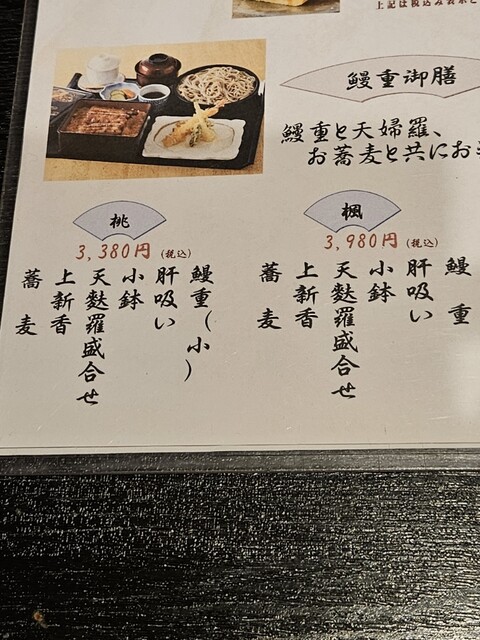 上記は税込み表示と
鰻重御膳
鰻重と天婦羅、
お蕎麦と共にお
桃
3,380円(税込)
鰻重(小)
肝吸い
小鉢
天麩羅盛合せ
上新香
蕎麦
楓
3,980円(税込)
鰻重
肝吸い
小鉢
天麩羅盛合せ
上新香
蕎麦